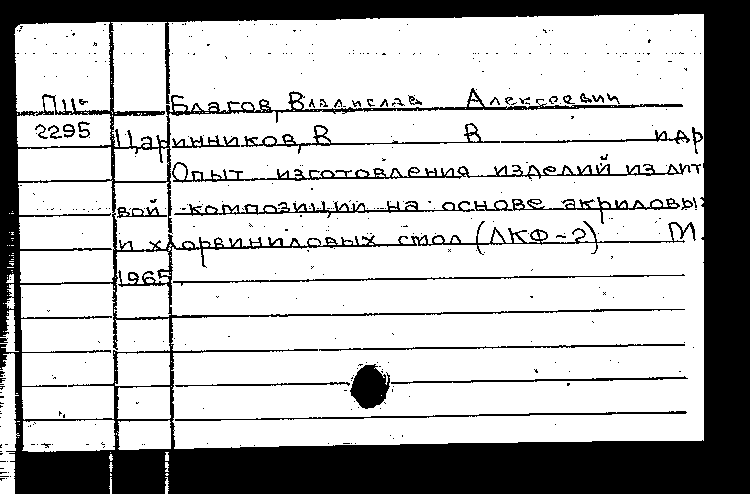 П11- Благов, Владислав Алексеевич
2295 Царинников, В В идр
Опыт изготовления изделий из лит
вой композиции на основе акриловы
и хлорвиниловых смол (ЛКФ-2) М.
1965